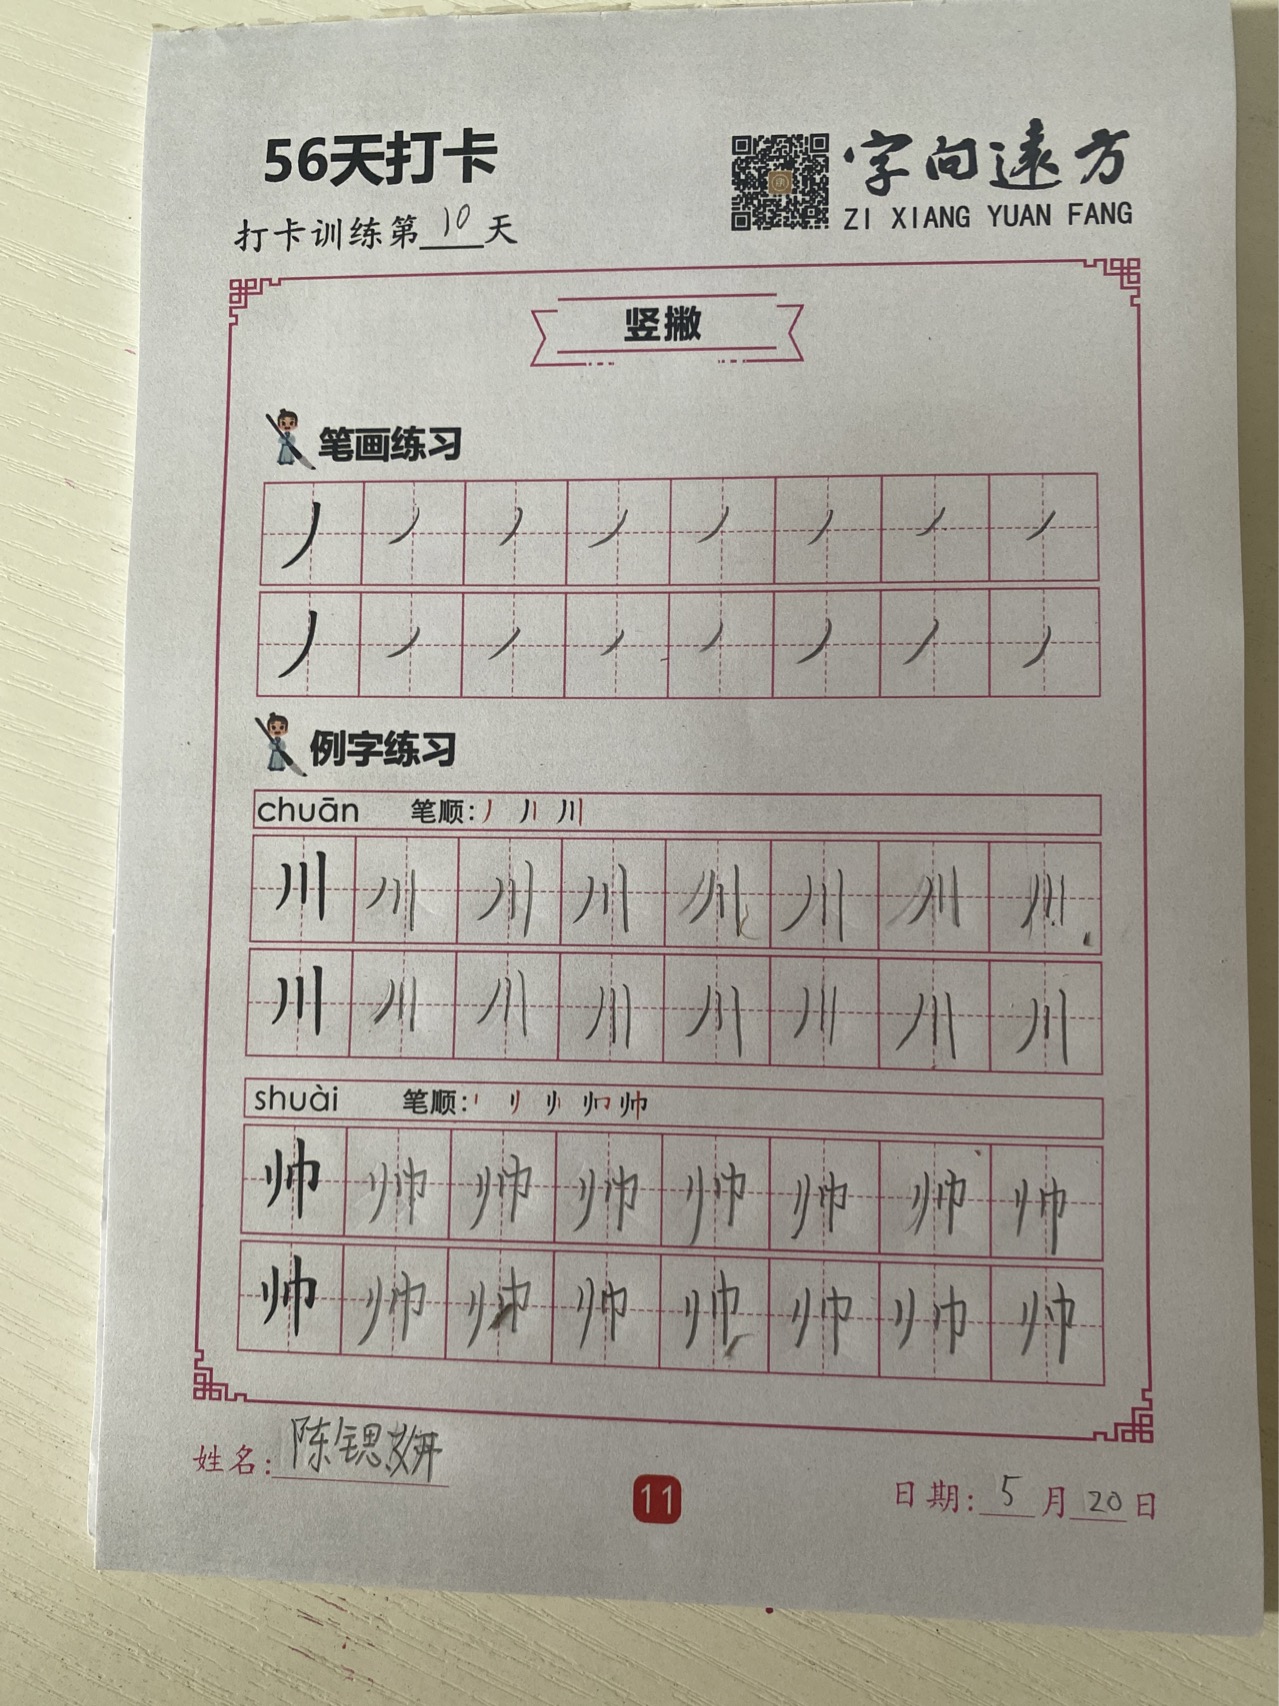 56天打卡
字向遠方
ZI XIANG YUAN FANG
打卡训练第10天
竖撇
笔画练习
丿 丿 丿 丿 丿 丿 丿 丿
丿 丿 丿 丿 丿 丿 丿 丿
例字练习
chuān 笔顺: 丿 川
川 川 川 川 川 川 川 川
川 川 川 川 川 川 川 川
shuài 笔顺: 帅
帅 帅 帅 帅 帅 帅 帅 帅
帅 帅 帅 帅 帅 帅 帅 帅
姓名: 陈锶妍
11
日期: 5月20日